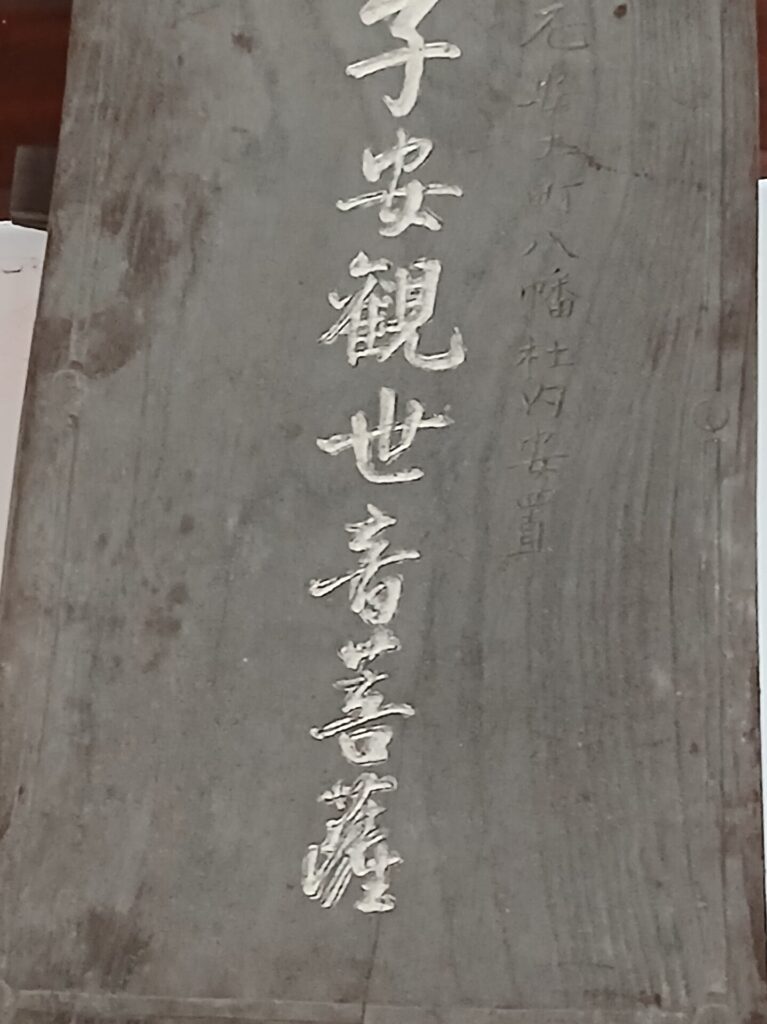 元大町八幡社内安置
子安観世音菩薩